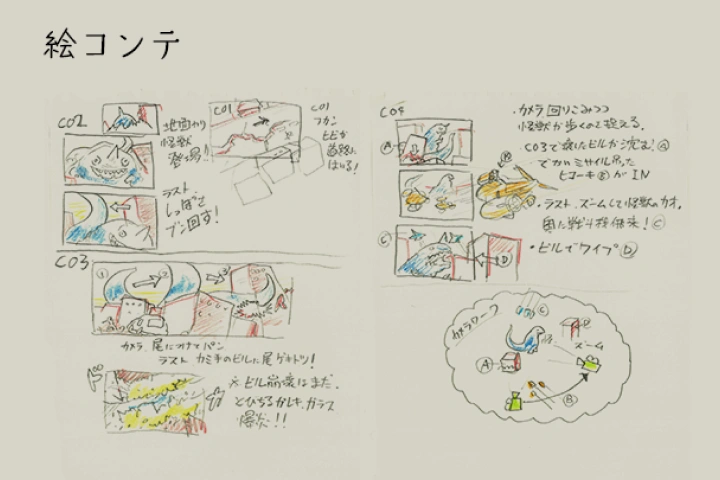 絵コンテ
C02
地面から
怪獣
登場!!
ラスト、
しっぽを
ブン回す!
C01
C01
フカン
ビビが
道路に
はいる!
C03
カメラ、尾に合わせてパン
ラスト カミキのビルに尾ゲキトツ!
※ビル崩壊はまだ。
とびちるガレキ、ガラス
爆炎!!
C04
・カメラ回りこみつつ
怪獣が歩くのを捉える。
・C03で壊したビルが沈む。Ⓐ
・でかいミサイル吊った
ヒコーキⒷがIN
・ラスト、ズームして怪獣のカオ。
奥に戦斗機体来!Ⓒ
・ビルでワイプⒹ
カメラワーク
ズーム
Ⓐ
Ⓑ